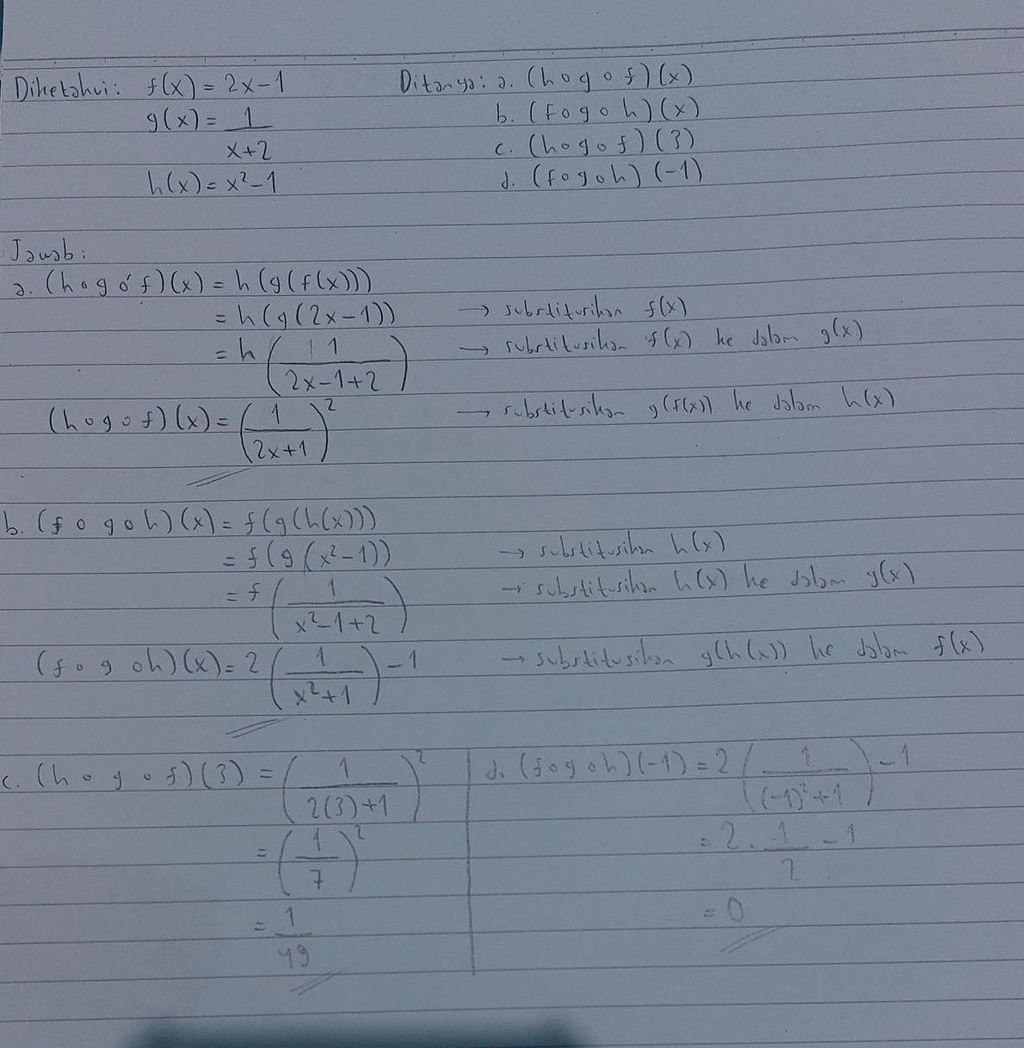 Diketahui: f(x) = 2x-1 Ditanya: a. (h o g o f)(x)
g(x) = 1/(x+2) b. (f o g o h)(x)
h(x) = x²-1 c. (h o g o f)(3)
d. (f o g o h)(-1)
Jawab:
a. (h o g o f)(x) = h(g(f(x)))
= h(g(2x-1)) → substitusikan f(x)
= h(1/(2x-1+2)) → substitusikan f(x) ke dalam g(x)
(h o g o f)(x) = (1/(2x+1))² → substitusikan g(f(x)) ke dalam h(x)
b. (f o g o h)(x) = f(g(h(x)))
= f(g(x²-1)) → substitusikan h(x)
= f(1/(x²-1+2)) → substitusikan h(x) ke dalam g(x)
(f o g o h)(x) = 2(1/(x²+1))-1 → substitusikan g(h(x)) ke dalam f(x)
c. (h o g o f)(3) = (1/(2(3)+1))²
= (1/7)²
= 1/49
d. (f o g o h)(-1) = 2(1/((-1)²+1))-1
= 2 . 1/2 - 1
= 0